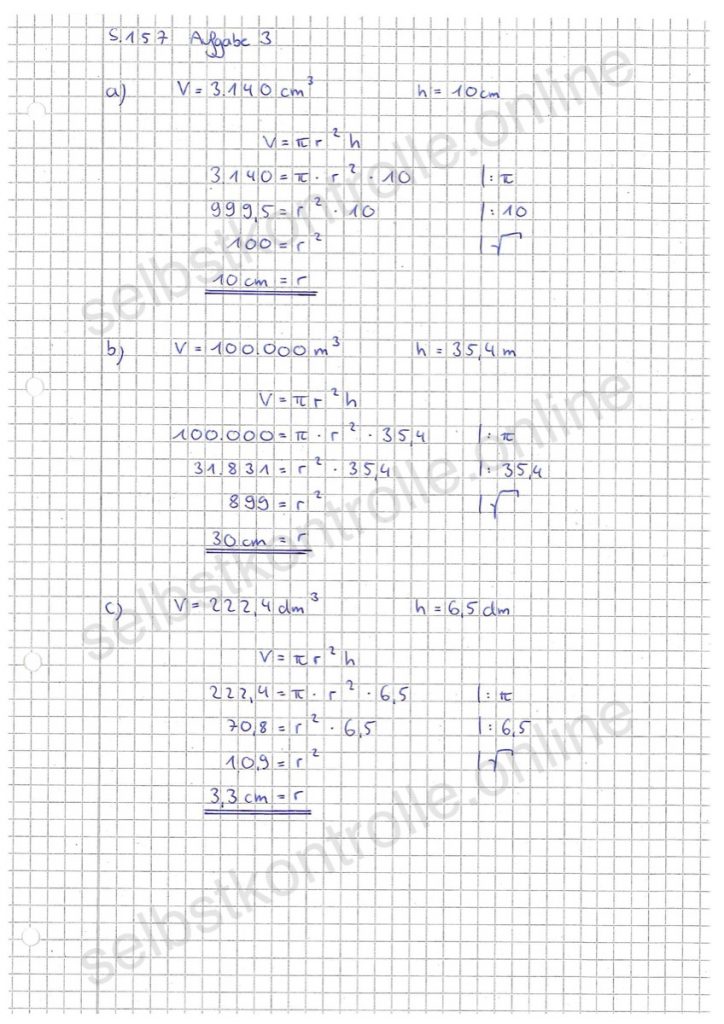 S.157 Aufgabe 3
a) V = 3.140 cm³ h = 10 cm
V = π r² h
3.140 = π · r² · 10 |: π
999,5 = r² · 10 |: 10
100 = r² |√
10 cm = r
b) V = 100.000 m³ h = 35,4 m
V = π r² h
100.000 = π · r² · 35,4 |: π
31.831 = r² · 35,4 |: 35,4
899 = r² |√
30 cm = r
c) V = 222,4 dm³ h = 6,5 dm
V = π r² h
222,4 = π · r² · 6,5 |: π
70,8 = r² · 6,5 |: 6,5
10,9 = r² |√
3,3 cm = r
selbstkontrolle.online
selbstkontrolle.online
selbstkontrolle.online